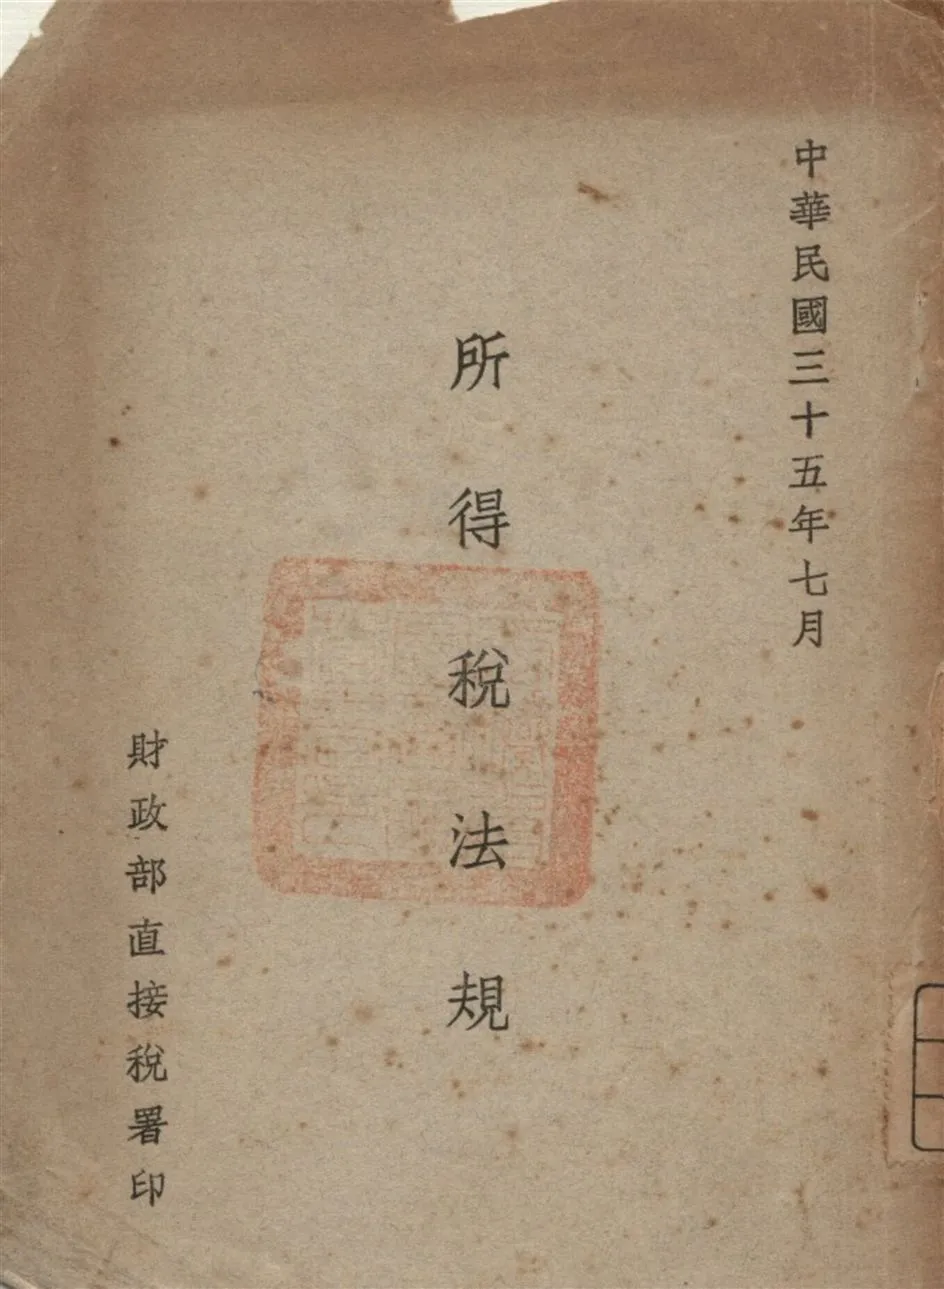 中華民國三十五年七月
所得稅法規
財政部直接稅署印